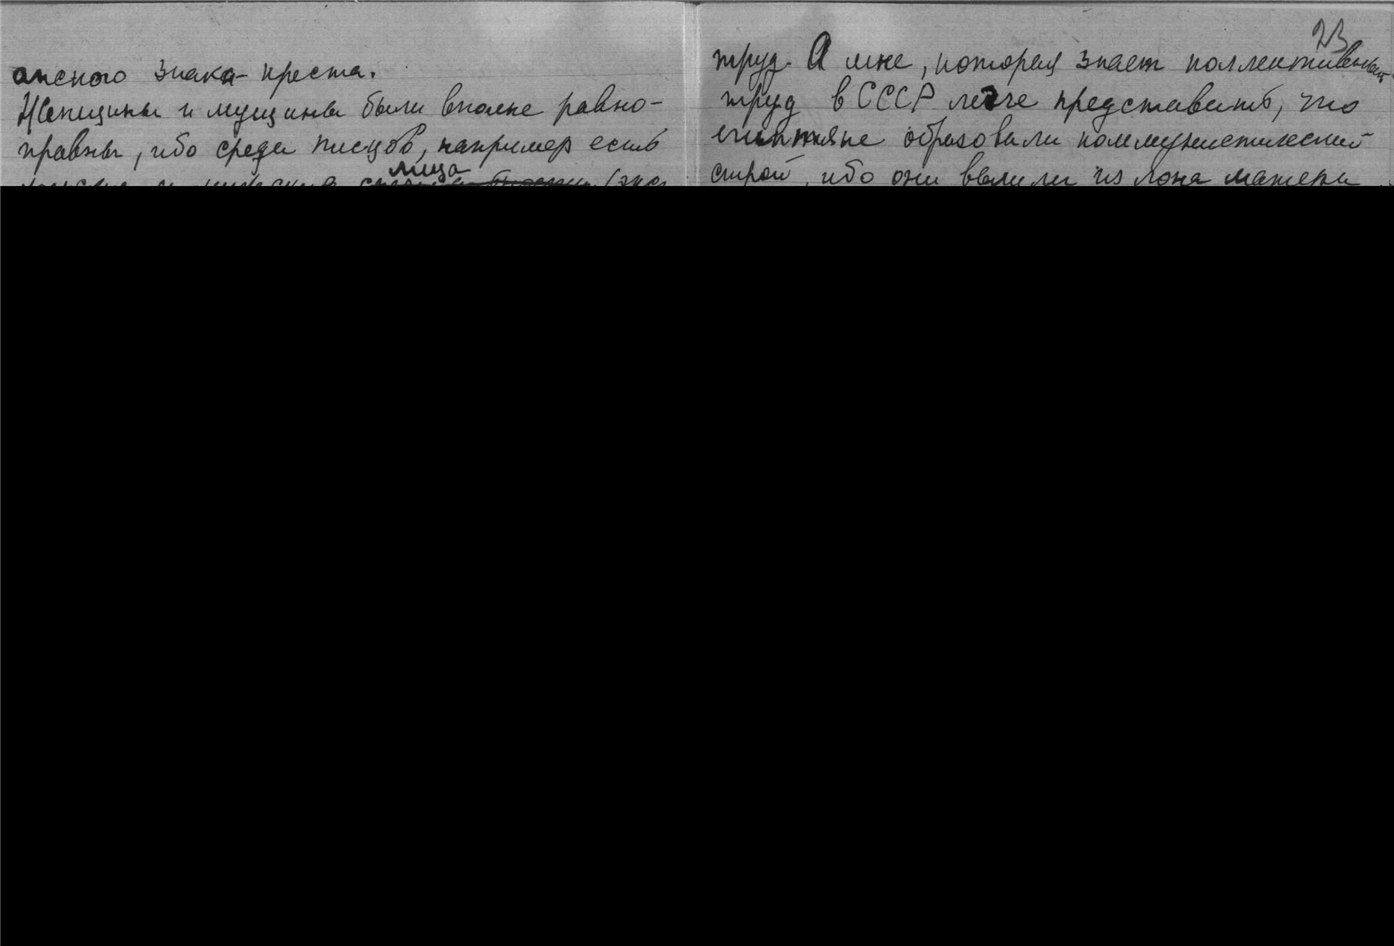 анского знака креста.
Женщины и мущины были вполне равно-
правны, ибо среди писцов, например есть
лица
23
труд. А мне, которая знает коллективный
труд в СССР легче представить, что
египтяне образовали коммунистический
строй, ибо они вышли из лона матери